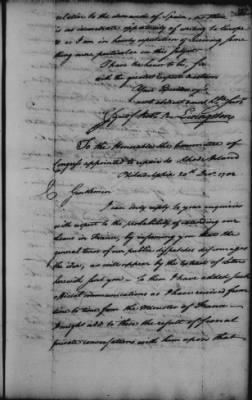 relative to the demands of Spain, as there
is an immediate opportunity of writing to Europe
& as I am in hourly expectation of hearing some
thing more particular on this subject.
I have the honor to be, Sir
with the greatest respect & esteem
Your Excellency's
most obedient humb Servt
Livingston
To the Honorable the Committee of
Congress appointed to repair to Rhode Island
Philadelphia 20th Decr. 1782
Gentlemen
I can only reply to your enquiries
with respect to the probability of extending our
Loans in France, by informing you that the
general tenor of our public dispatches discourages
the idea, as will appear by the extracts of letters
herewith sent you. To them I have added such
official communications as I have received from
time to time from the Minister of France
I might add to these the result of several
private conversations with him upon that